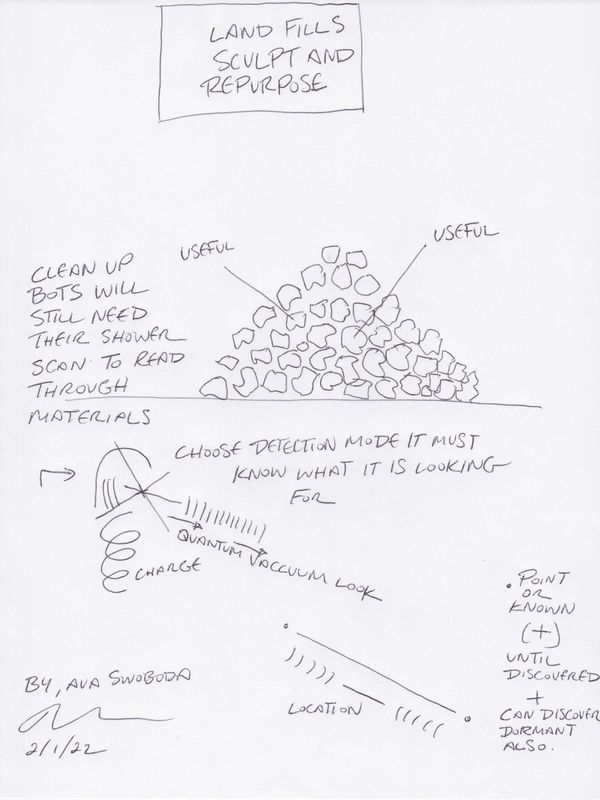 LAND FILLS
SCULPT AND
REPURPOSE
USEFUL
USEFUL
CLEAN UP
BOTS WILL
STILL NEED
THEIR SHOWER
SCAN TO READ
THROUGH
MATERIALS
CHOOSE DETECTION MODE IT MUST
KNOW WHAT IT IS LOOKING
FOR
QUANTUM VACCUUM LOOK
CHARGE
. POINT
OR
KNOWN
(+)
UNTIL
DISCOVERED
+
CAN DISCOVER
DORMANT
ALSO.
LOCATION
BY, AVA SWOBODA
2/1/22